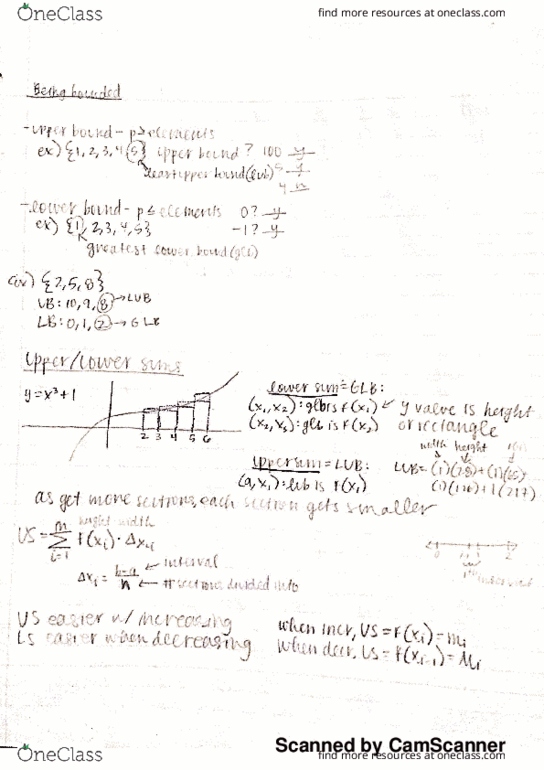 OneClass
find more resources at oneclass.com
Being bounded
-upper bound - p≥elements
ex) {1,2,3,4,5} upper bound? 100 y
least upper bound (lub) 5 y
4 n
-lower bound - p≤elements 0? y
ex) {1,2,3,4,5} -1? y
greatest lower bound (glb)
ex) {2,5,8}
UB: 10,9,8→LUB
LB: 0,1,2→GLB
Upper/Lower sums
y=x³+1
2 3 4 5 6
lower sum=GLB:
(x₁,x₂):glb is f(x₁) ← y value is height
(x₂,x₃):glb is f(x₂) of rectangle
width height
upper sum=LUB: LUB=(1)(28)+(1)(65)
(a,x₁):lub is f(x₁) (1)(126)+1(217)
as get more sections, each section gets smaller
height width
US=∑ f(xᵢ)·Δxᵢ
i=1
Δxᵢ = b-a ← interval
n ← # sections divided into
US easier w/ increasing when incr, US=f(xᵢ)=mᵢ
LS easier when decreasing when decr, LS=f(xᵢ₋₁)=Mᵢ
Scanned by CamScanner
OneClass
find more resources at oneclass.com